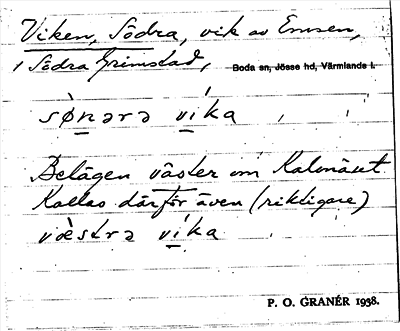 Viken, Södra, vik av Emsen,
i Södra Grimstad, Boda sn, Jösse hd, Värmlands l.
sø̀nərə víka
Belägen väster om Kalvnäset
Kallas därför även (riktigare)
væ̀strə víka
P. O. GRANÉR 1938.